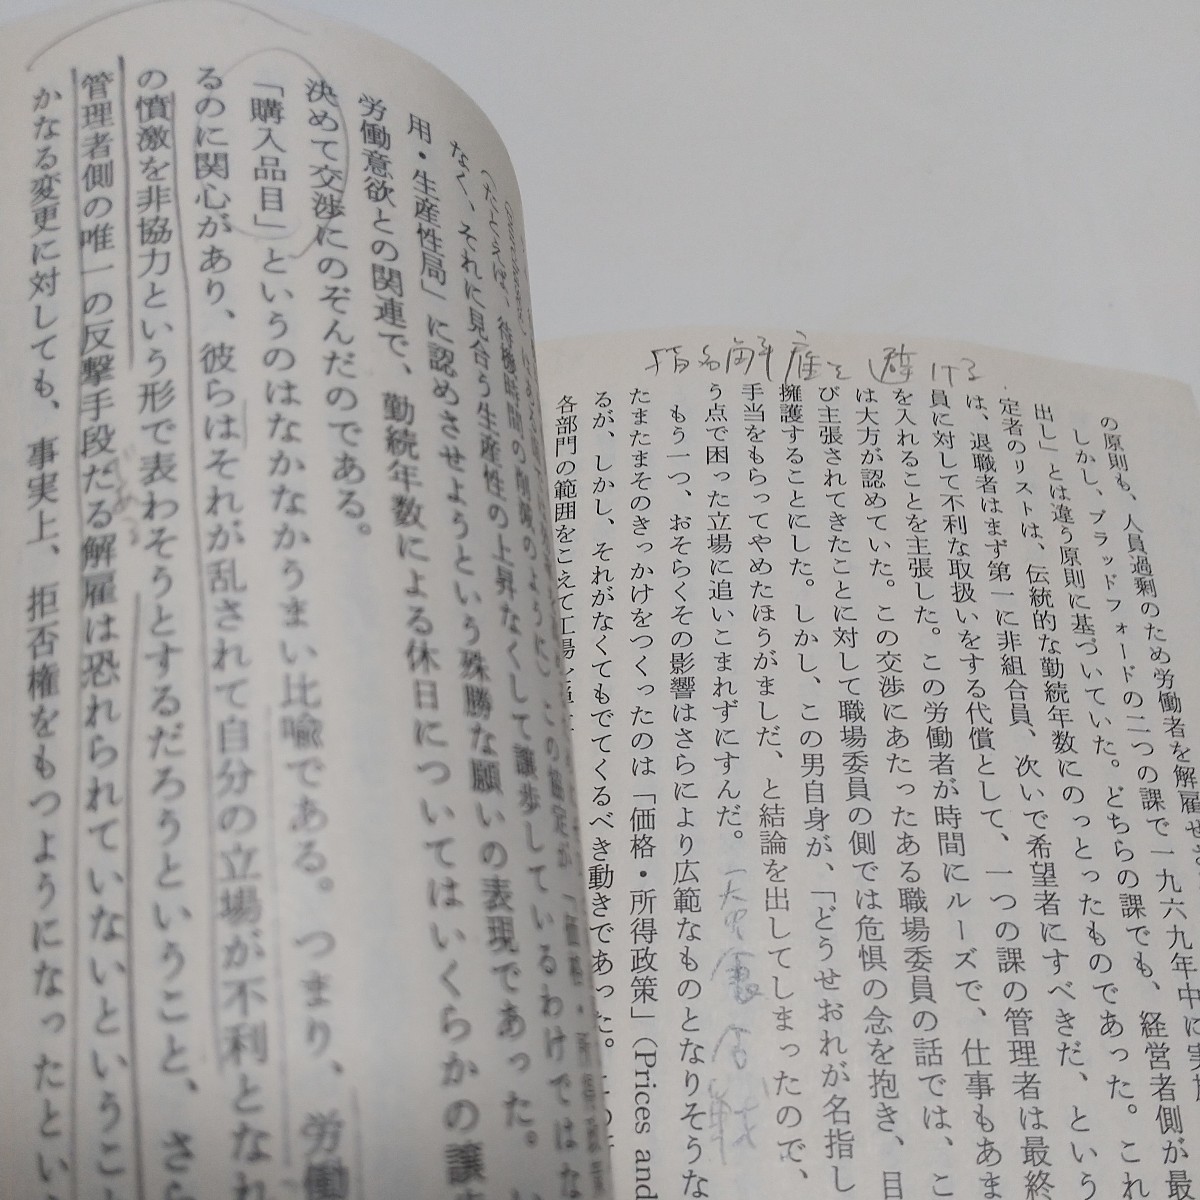 の原則も、人員過剰のため労働者を解雇せ
しかし、ブラッドフォードの二つの課で一九六九年中に実施
出し」とは違う原則に基づいていた。どちらの課でも、経営者側が最
定者のリストは、伝統的な勤続年数にのっとったものであった。これ
は、退職者はまず第一に非組合員、次いで希望者にすべきだ、という
員に対して不利な取扱いをする代償として、一つの課の管理者は最終
を入れることを主張した。この労働者が時間にルーズで、仕事もあま
は大方が認めていた。この交渉にあたったある職場委員の話では、こ
び主張されてきたことに対して職場委員の側では危惧の念を抱き、目
擁護することにした。しかし、この男自身が、「どうせおれが名指し
手当をもらってやめたほうがましだ、と結論を出してしまったので、
う点で困った立場に追いこまれずにすんだ。
もう一つ、おそらくその影響はさらにより広範なものとなりそうな
たまたまそのきっかけをつくったのは「価格・所得政策」(Prices and
るが、しかし、それがなくてもでてくるべき動きであった。
各部門の範囲をこえて工場
指名解雇を避ける
(たとえば、待機時間の削減のように)、この協定が「価格・所得政策
なく、それに見合う生産性の上昇なくして譲歩しているわけではな
用・生産性局」に認めさせようという殊勝な願いの表現であった。
労働意欲との関連で、勤続年数による休日についてはいくらかの譲
決めて交渉にのぞんだのである。
「購入品目」というのはなかなかうまい比喩である。つまり、労働
るのに関心があり、彼らはそれが乱されて自分の立場が不利となれ
の憤激を非協力という形で表わそうとするだろうということ、さら
管理者側の唯一の反撃手段たる解雇は恐れられていないというこ
かなる変更に対しても、事実上、拒否権をもつようになったとい